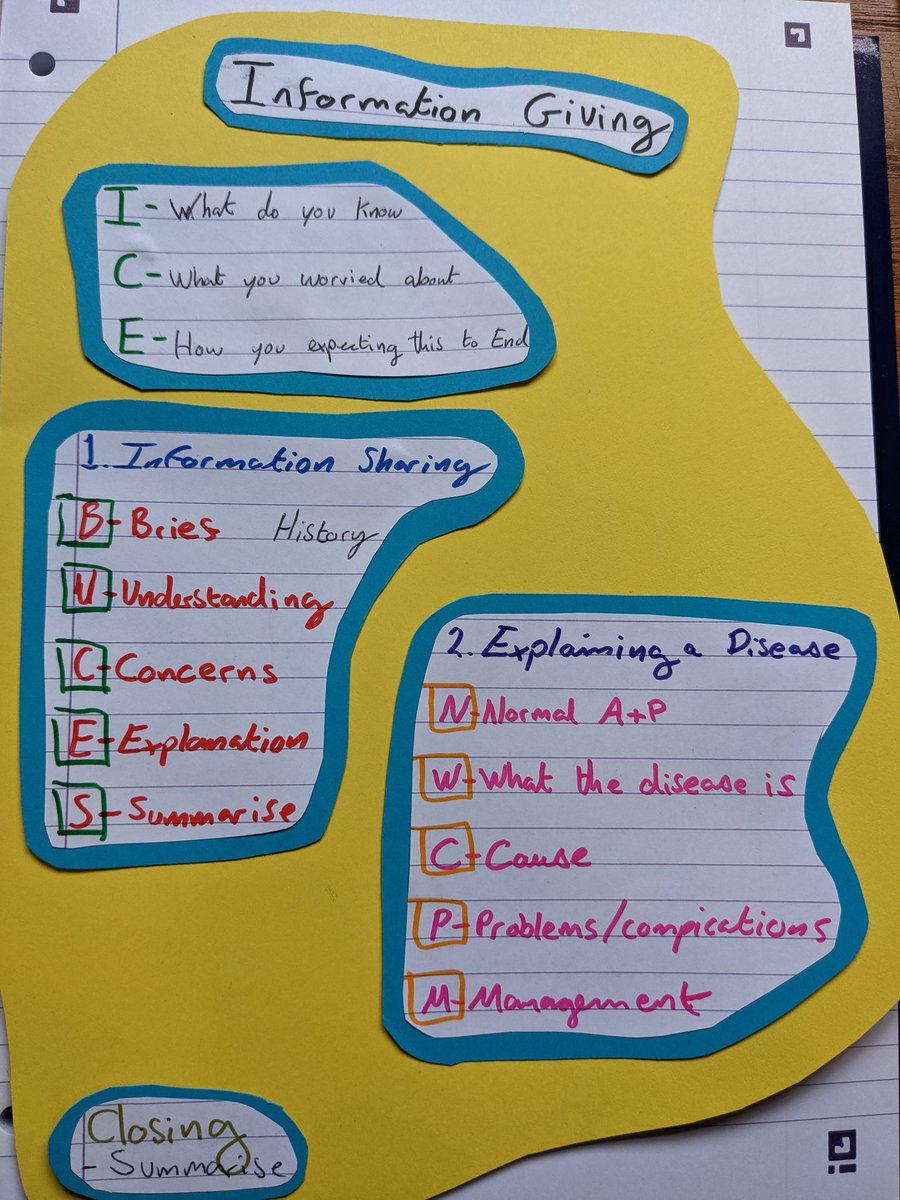 Information Giving
I - What do you know
C - What you worried about
E - How you expecting this to End
1. Information Sharing
B - Bries History
U - Understanding
C - Concerns
E - Explanation
S - Summarise
2. Explaining a Disease
N - Normal A+P
W - What the disease is
C - Cause
P - Problems/compications
M - Management
Closing
- Summarise